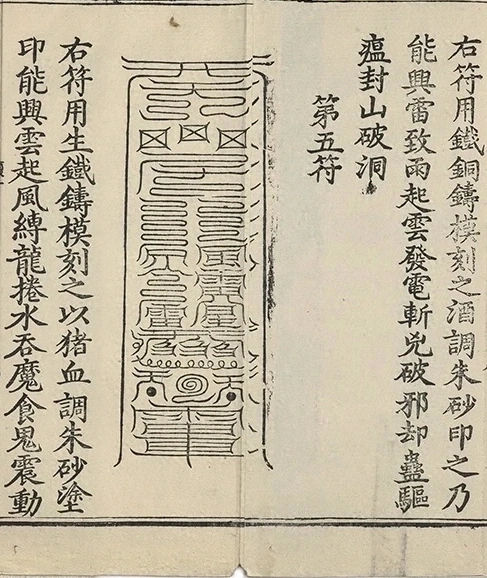 右符用鐵銅鑄模刻之酒調朱砂印之乃
能興雷致雨起雲發電斬兇破邪却蠱驅
瘟封山破洞
第五符
右符用生鐵鑄模刻之以猪血調朱砂塗
印能興雲起風縛龍捲水吞魔食鬼震動